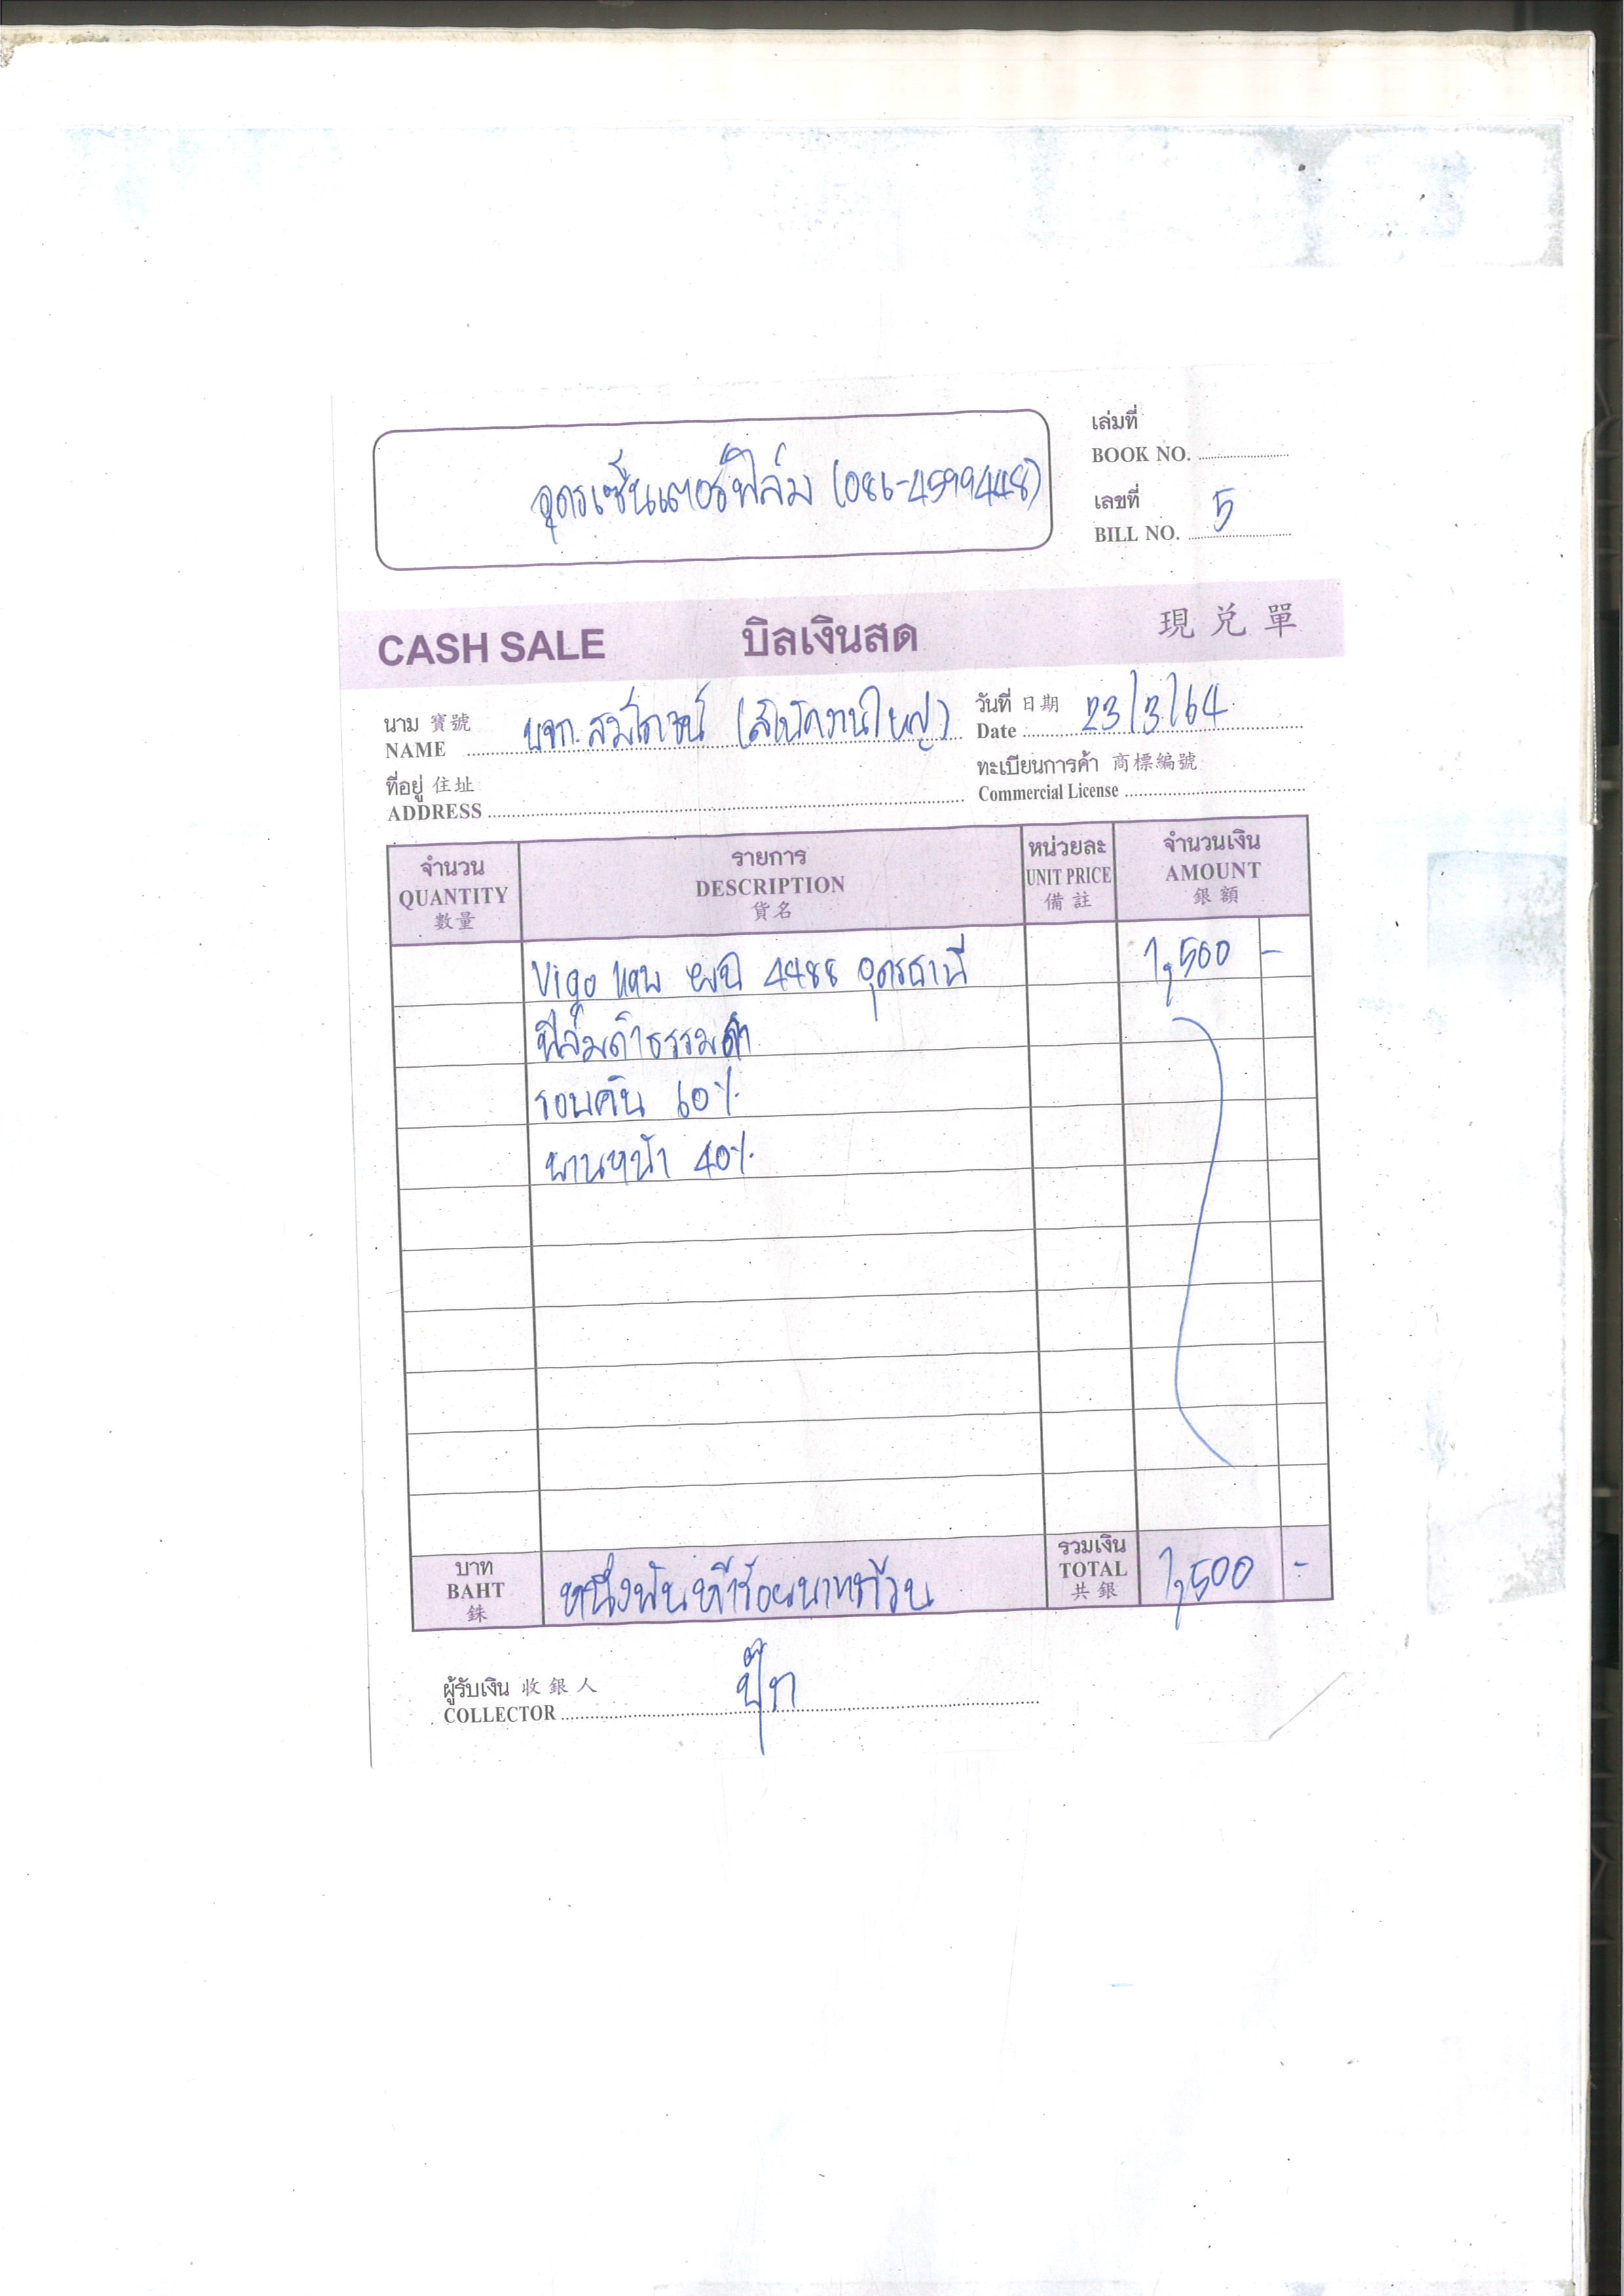 อุดรเซ็นเตอร์ฟิล์ม (086-4599448)
เล่มที่
BOOK NO.
เลขที่ 5
BILL NO.
CASH SALE บิลเงินสด 現兌單
นาม 寶號 บจก. สมโภชน์ (สำนักงานใหญ่)
NAME
วันที่ 日期 23/3/64
Date
ที่อยู่ 住址
ADDRESS
ทะเบียนการค้า 商標編號
Commercial License
จำนวน รายการ หน่วยละ จำนวนเงิน
QUANTITY DESCRIPTION UNIT PRICE AMOUNT
數量 貨名 備註 銀額
Vigo แคบ 4488 อุดรธานี 1,500 -
ฟิล์มดำธรรมดา
รอบคัน 60%
บานหน้า 40%
บาท หนึ่งพันห้าร้อยบาทถ้วน รวมเงิน 1,500 -
BAHT TOTAL
銖 共銀
ผู้รับเงิน 收銀人 ปุ๊ก
COLLECTOR